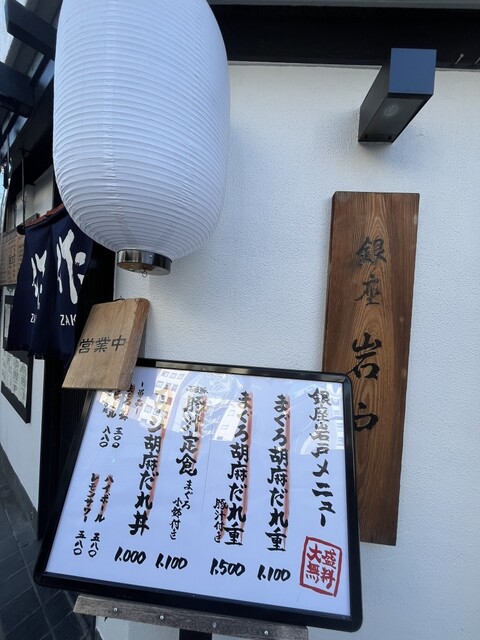 銀座 岩戸
営業中
ZA
ZAK
銀座岩戸メニュー
大盛無料
まぐろ胡麻だれ重
1.100
まぐろ胡麻だれ重
豚汁付き
1.500
豚汁定食
まぐろ
小鉢付き
1.100
胡麻だれ丼
1.000
五〇〇
八八〇
ハイボール
五八〇
レモンサワー
五八〇